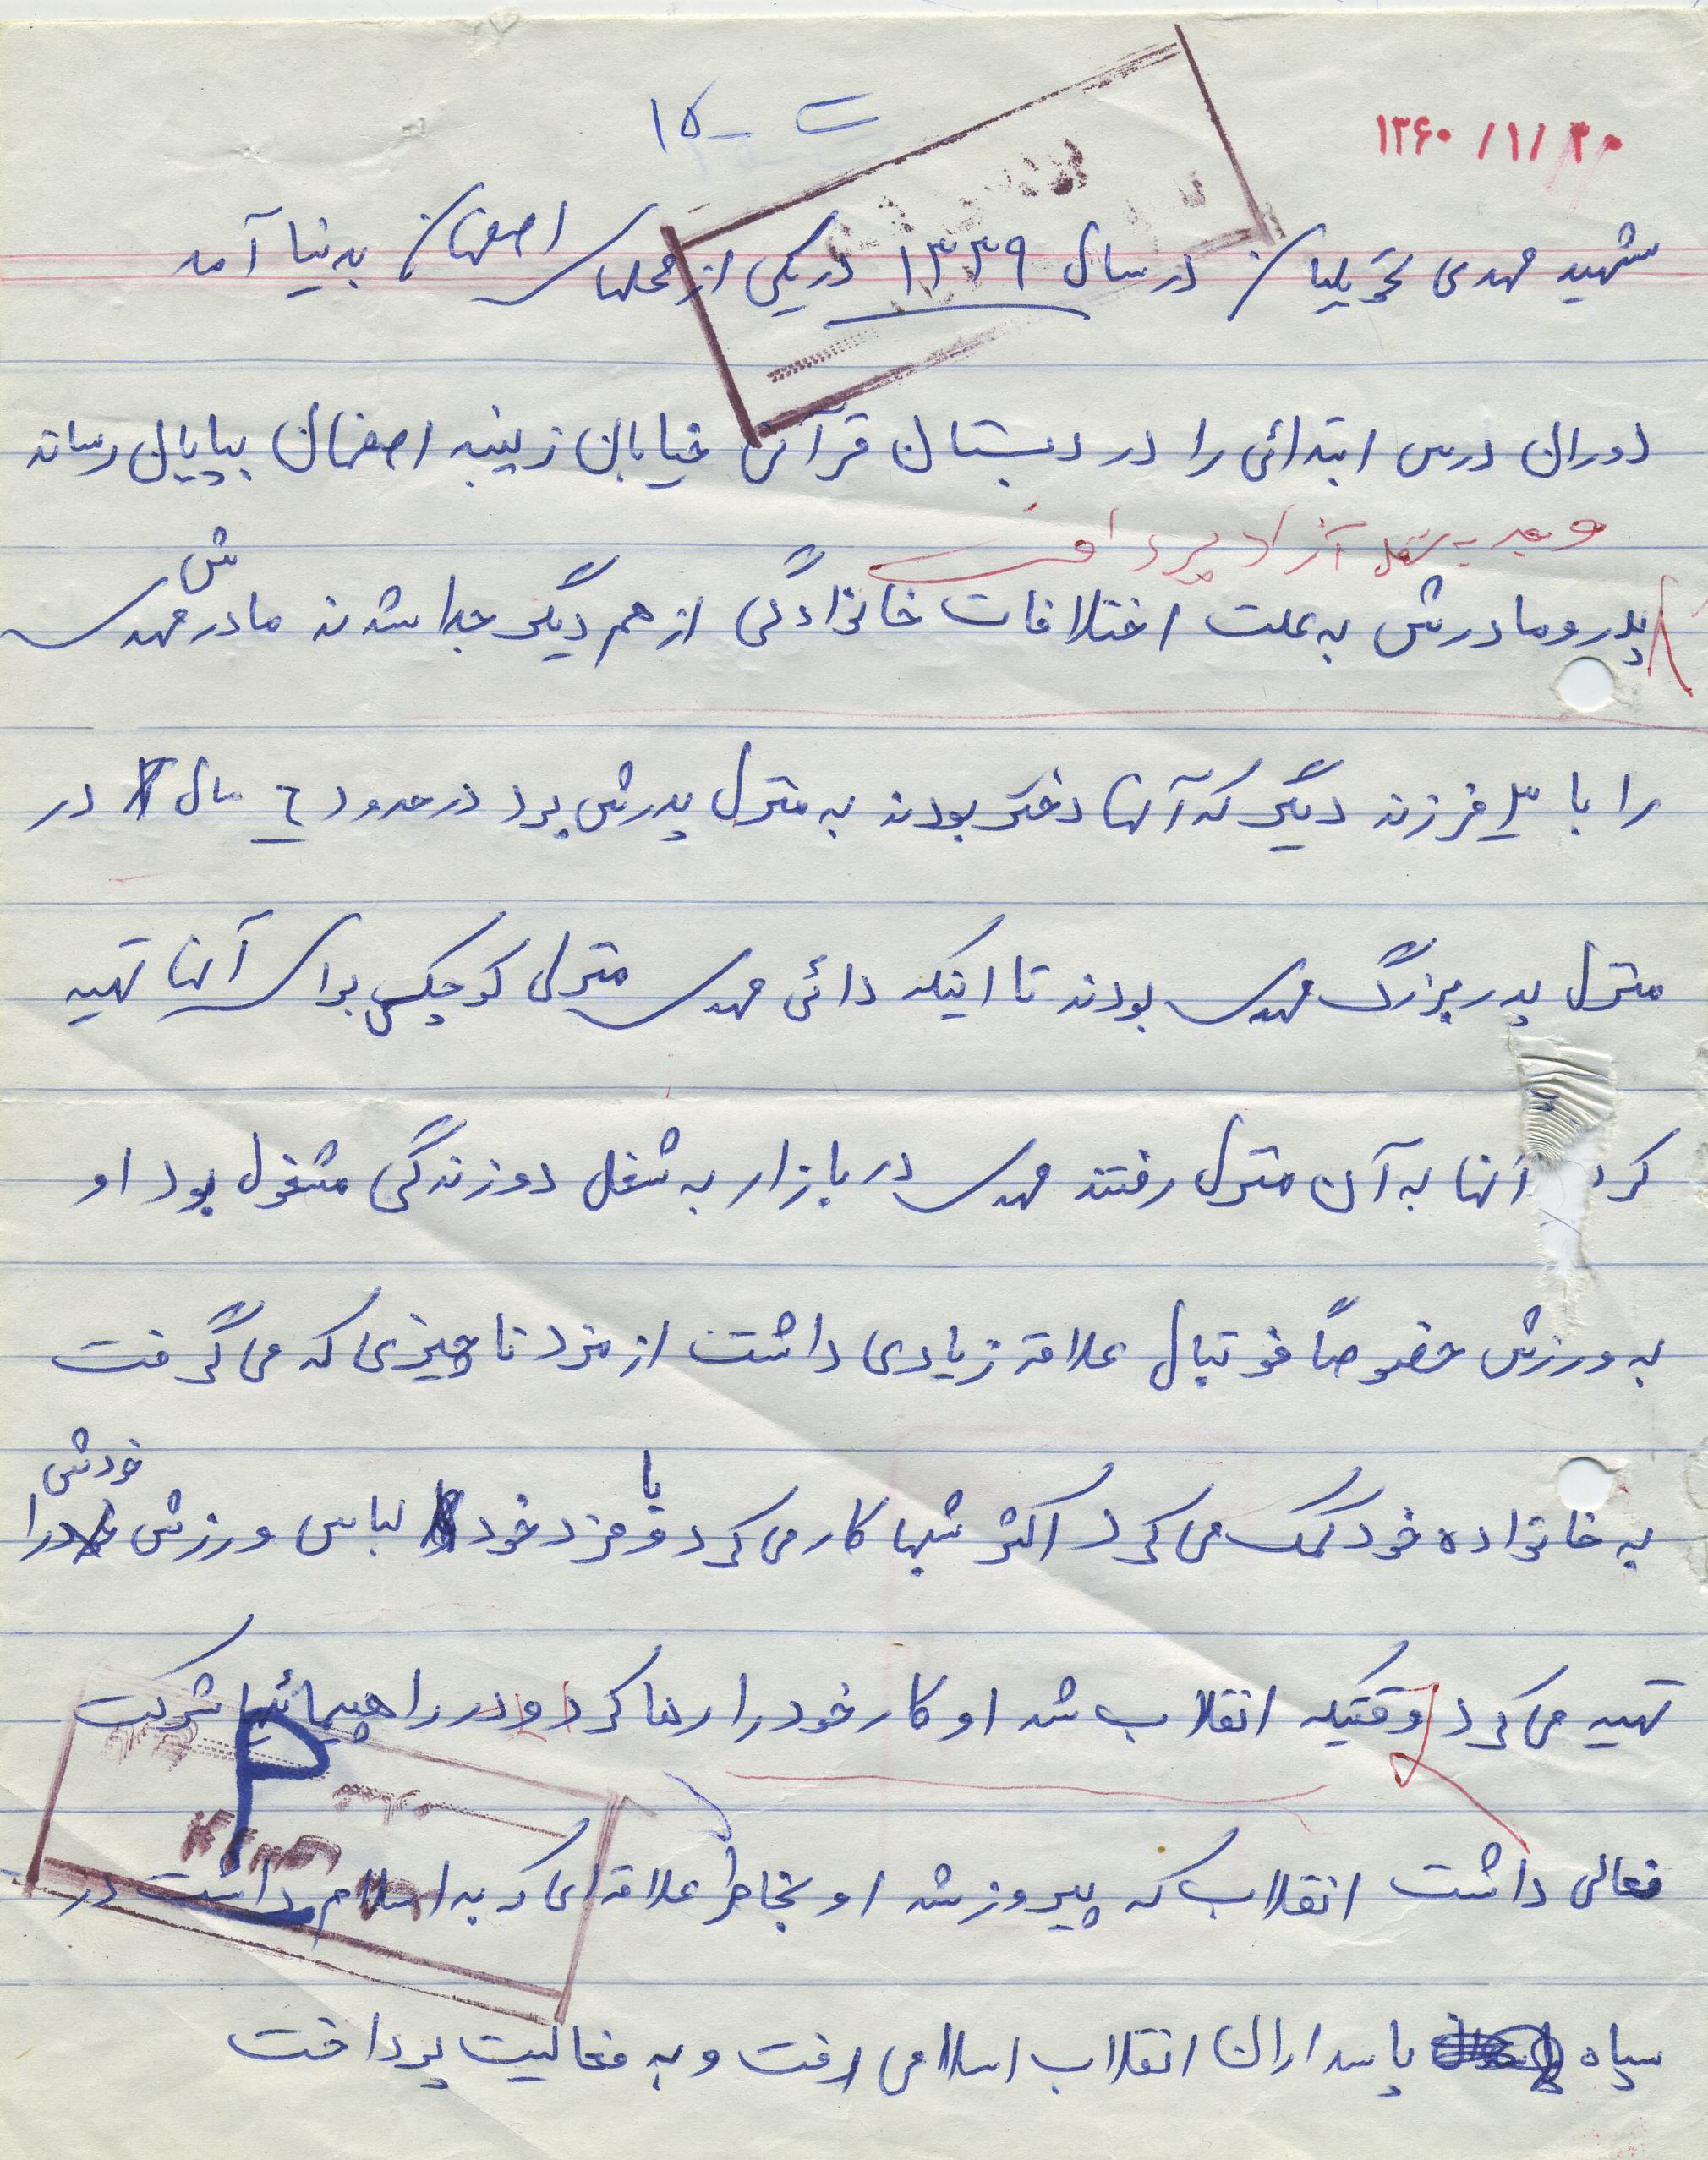 ۱۳۶۰/۱/۲۰
شهید مهدی تحویلیان در سال ۱۳۳۹ در یکی از محلهای اصفهان به دنیا آمد
دوران درس ابتدائی را در دبستان قرآن خیابان زینبیه اصفهان بپایان رساند
و بعد به شغل آزاد پرداخت
پدر و مادرش به علت اختلافات خانوادگی از هم دیگر جدا شدند مادرش مهدی
را با ۳ فرزند دیگر که آنها دختر بودند به منزل پدرش برد در حدود ۴ سال در
منزل پدر بزرگ مهدی بودند تا اینکه دائی مهدی منزلی کوچک برای آنها تهیه
کرد آنها به آن منزل رفتند مهدی در بازار به شغل دوزندگی مشغول بود او
به ورزش خصوصاً فوتبال علاقه زیادی داشت از مزد ناچیزی که می گرفت
به خانواده خود کمک می کرد اکثر شبها کار می کرد و با مزد خود لباس ورزش خودش را
تهیه می کرد وقتیکه انقلاب شد او کار خود را رها کرد و در راهپیمائیها شرکت
فعالی داشت انقلاب که پیروز شد او بخاطر علاقه ای که به اسلام داشت در
سپاه پاسداران انقلاب اسلامی رفت و به فعالیت پرداخت